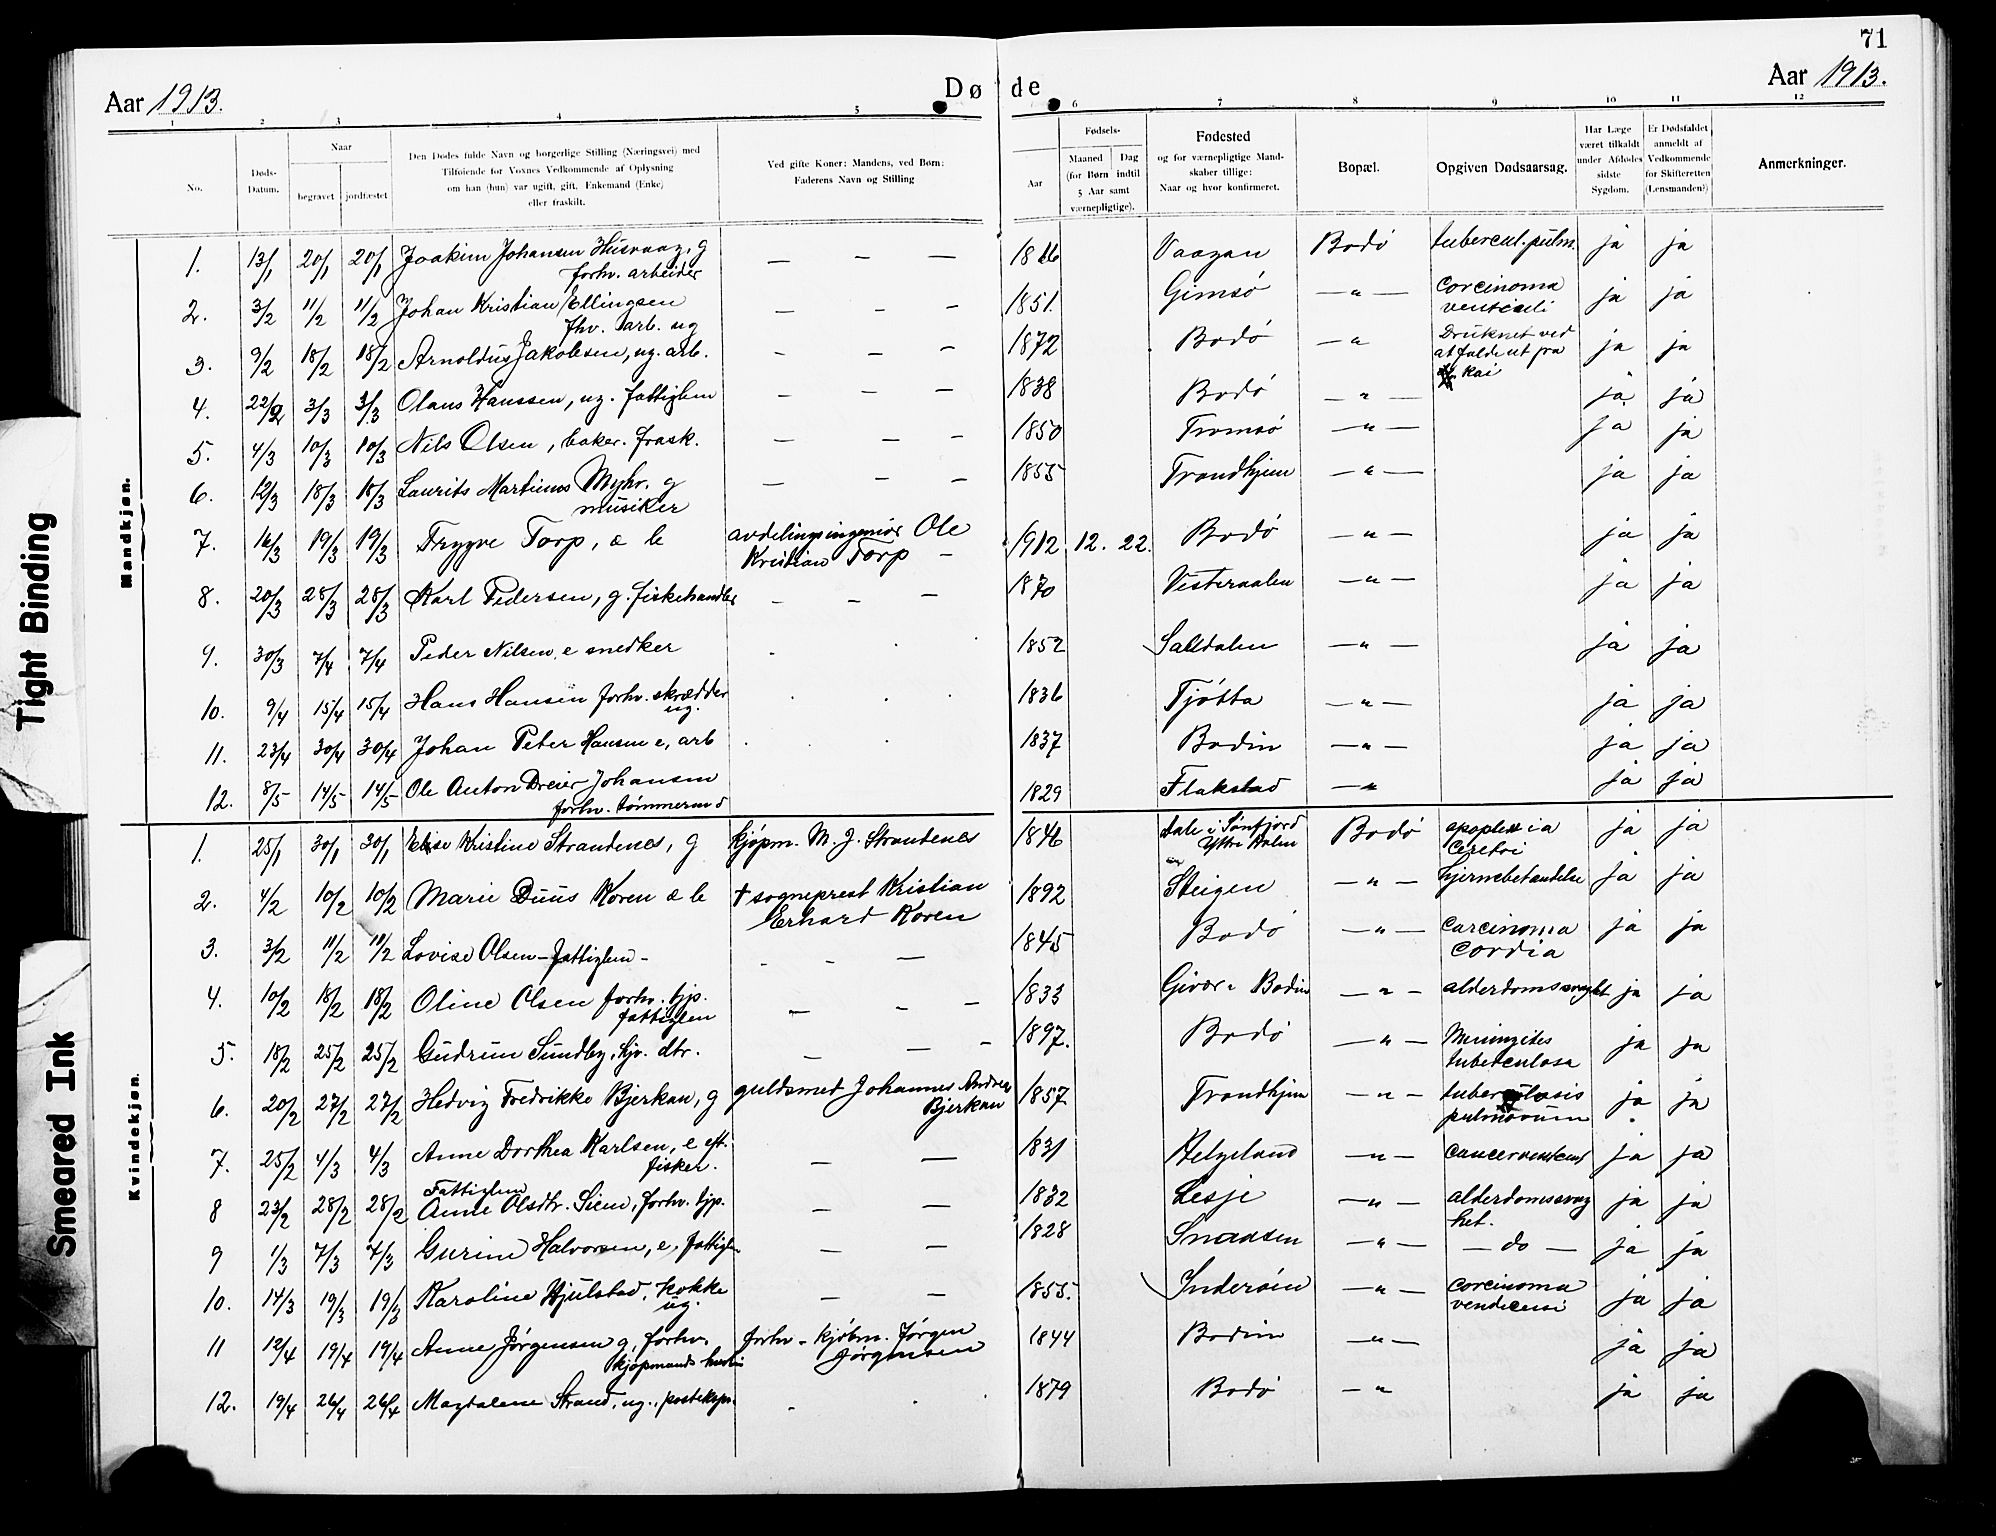 71
Aar 1913.
Døde
Aar 1913.
1 2 3 4 5 6 7 8 9 10 11 12
No.
Døds-Datum.
Naar
begravet
jordfæstet
Den Dødes fulde Navn og borgerlige Stilling (Næringsvei) med
Tilføiende for Voxnes Vedkommende af Oplysning
om han (hun) var ugift, gift, Enkemand (Enke)
eller fraskilt.
Ved gifte Koner: Mandens, ved Børn:
Faderens Navn og Stilling
Aar
Fødsels-
Maaned Dag
(for Børn indtil
5 Aar samt
værnepligtige).
Fødested
og for værnepligtige Mand-
skaber tillige:
Naar og hvor konfirmeret.
Bopæl.
Opgiven Dødsaarsag.
Har Læge
været tilkaldt
under Afdødes
sidste
Sygdom.
Er Dødsfaldet
anmeldt af
Vedkommende
for Skifteretten
(Lensmanden?)
Anmerkninger.
Mandkjøn.
1. 13/1 20/1 20/1 Joakim Johansen Husvaag, g — — — Vaagan Bodó tubercul. pulm. ja ja
forhv. arbeider
2. 3/2 11/2 11/2 Johan Kristian Ellingsen — — — 1851. Gimsó —"— Corcinoma ja ja
fhv. arb. ug
3. 9/2 18/2 18/2 Arnoldus Jakobsen, ug. arb. — — — 1872 Bodó —" Druknet ved ja ja
at falde ut fra
kai
4. 22/2 3/3 3/3 Olaus Hanssen, ug. fattiglem — — — 1838 Bodó —"— ja ja
5. 4/3 10/3 10/3 Nils Olsen, baker. frask. — — — 1850 Tromsó —"— ja ja
6. 12/3 18/3 18/3 Laurits Martinus Myhr. g — — — 1855 Trondhjem —"— ja ja
musiker
7. 16/3 19/3 19/3 Trygve Torp, æ b avdelingsingeniør Ole 1912 12. 22. Bodó —"— ja ja
Kristian Torp —
8. 20/3 28/3 28/3 Karl Pedersen, g. fiskehandler — — — 1870 Vesteraalen —"— ja ja
9. 30/3 7/4 7/4 Peder Nilsen, e snedker 1852 Saltdalen —"— ja ja
10. 9/4 15/4 15/4 Hans Hansen forhv. skrædder 1836 Tjótta —"— ja ja
ug.
11. 23/4 30/4 30/4 Johan Peter Hansen e, arb 1837 Bodin —"— ja ja
12. 8/5 14/5 14/5 Ole Anton Dreier Johansen 1829 Flakstad —" ja ja
forhv. tømmermd
Kvindekjøn.
1. 25/1 30/1 30/1 Elise Kristine Strandenes, g kjópm. M. J. Strandenes 1846 Dale i Sønfjord Bodó ja ja
Ytre Holm
2. 4/2 10/2 10/2 Marie Duus Koren æ b † sogneprest Kristian 1892 Steigen —"— hjernebetændelse ja ja
Erhard Koren
3. 3/2 11/2 11/2 Lovise Olsen – fattiglem – — — — 1845 Bodó —"— Carcinoma ja ja
cordia
4. 10/2 18/2 18/2 Oline Olsen forhv. tjp. — — — 1833 Givær i Bodin —"— alderdomssvaght ja ja
fattiglem
5. 18/2 25/2 25/2 Gudrun Sundby, hjv. dtr. — — — 1897. Bodó —"— Meningites ja ja
tuberculosa
6. 20/2 27/2 27/2 Hedvig Fredrikke Bjerkan, g guldsmed Johannes Andreas 1857 Trondhjem —"— tuberculosis ja ja
Bjerkan pulmorum
7. 25/2 4/3 4/3 Anne Dorthea Karlsen, e eft. — — 1831 Helgeland —"— ja ja
fisker.
Fattiglem
8 23/2 28/2 28/2 Anne Olsdtr. Siem, forhv. tjp. — — 1832 Lesje —"— alderdomssvag ja ja
het.
9 1/3 7/3 7/3 Gurine Halvorsen, e. fattiglem — — 1828 Snaasen —"— — do — ja ja
10. 14/3 19/3 19/3 Karoline Hjulstad, kokke — — 1855. Inderóen —"— corcinoma ja ja
ug.
11 12/4 19/4 19/4 Anne Jørgensen g, forhv. forhv – kjóbm. Jørgen 1844 Bodin —"— ja ja
kjópmands hustru Jørgensen
12. 19/4 26/4 26/4 Magdalene Strand, ug., posteksp. 1879 Bodó —" ja ja
Tight Binding
Smeared Ink